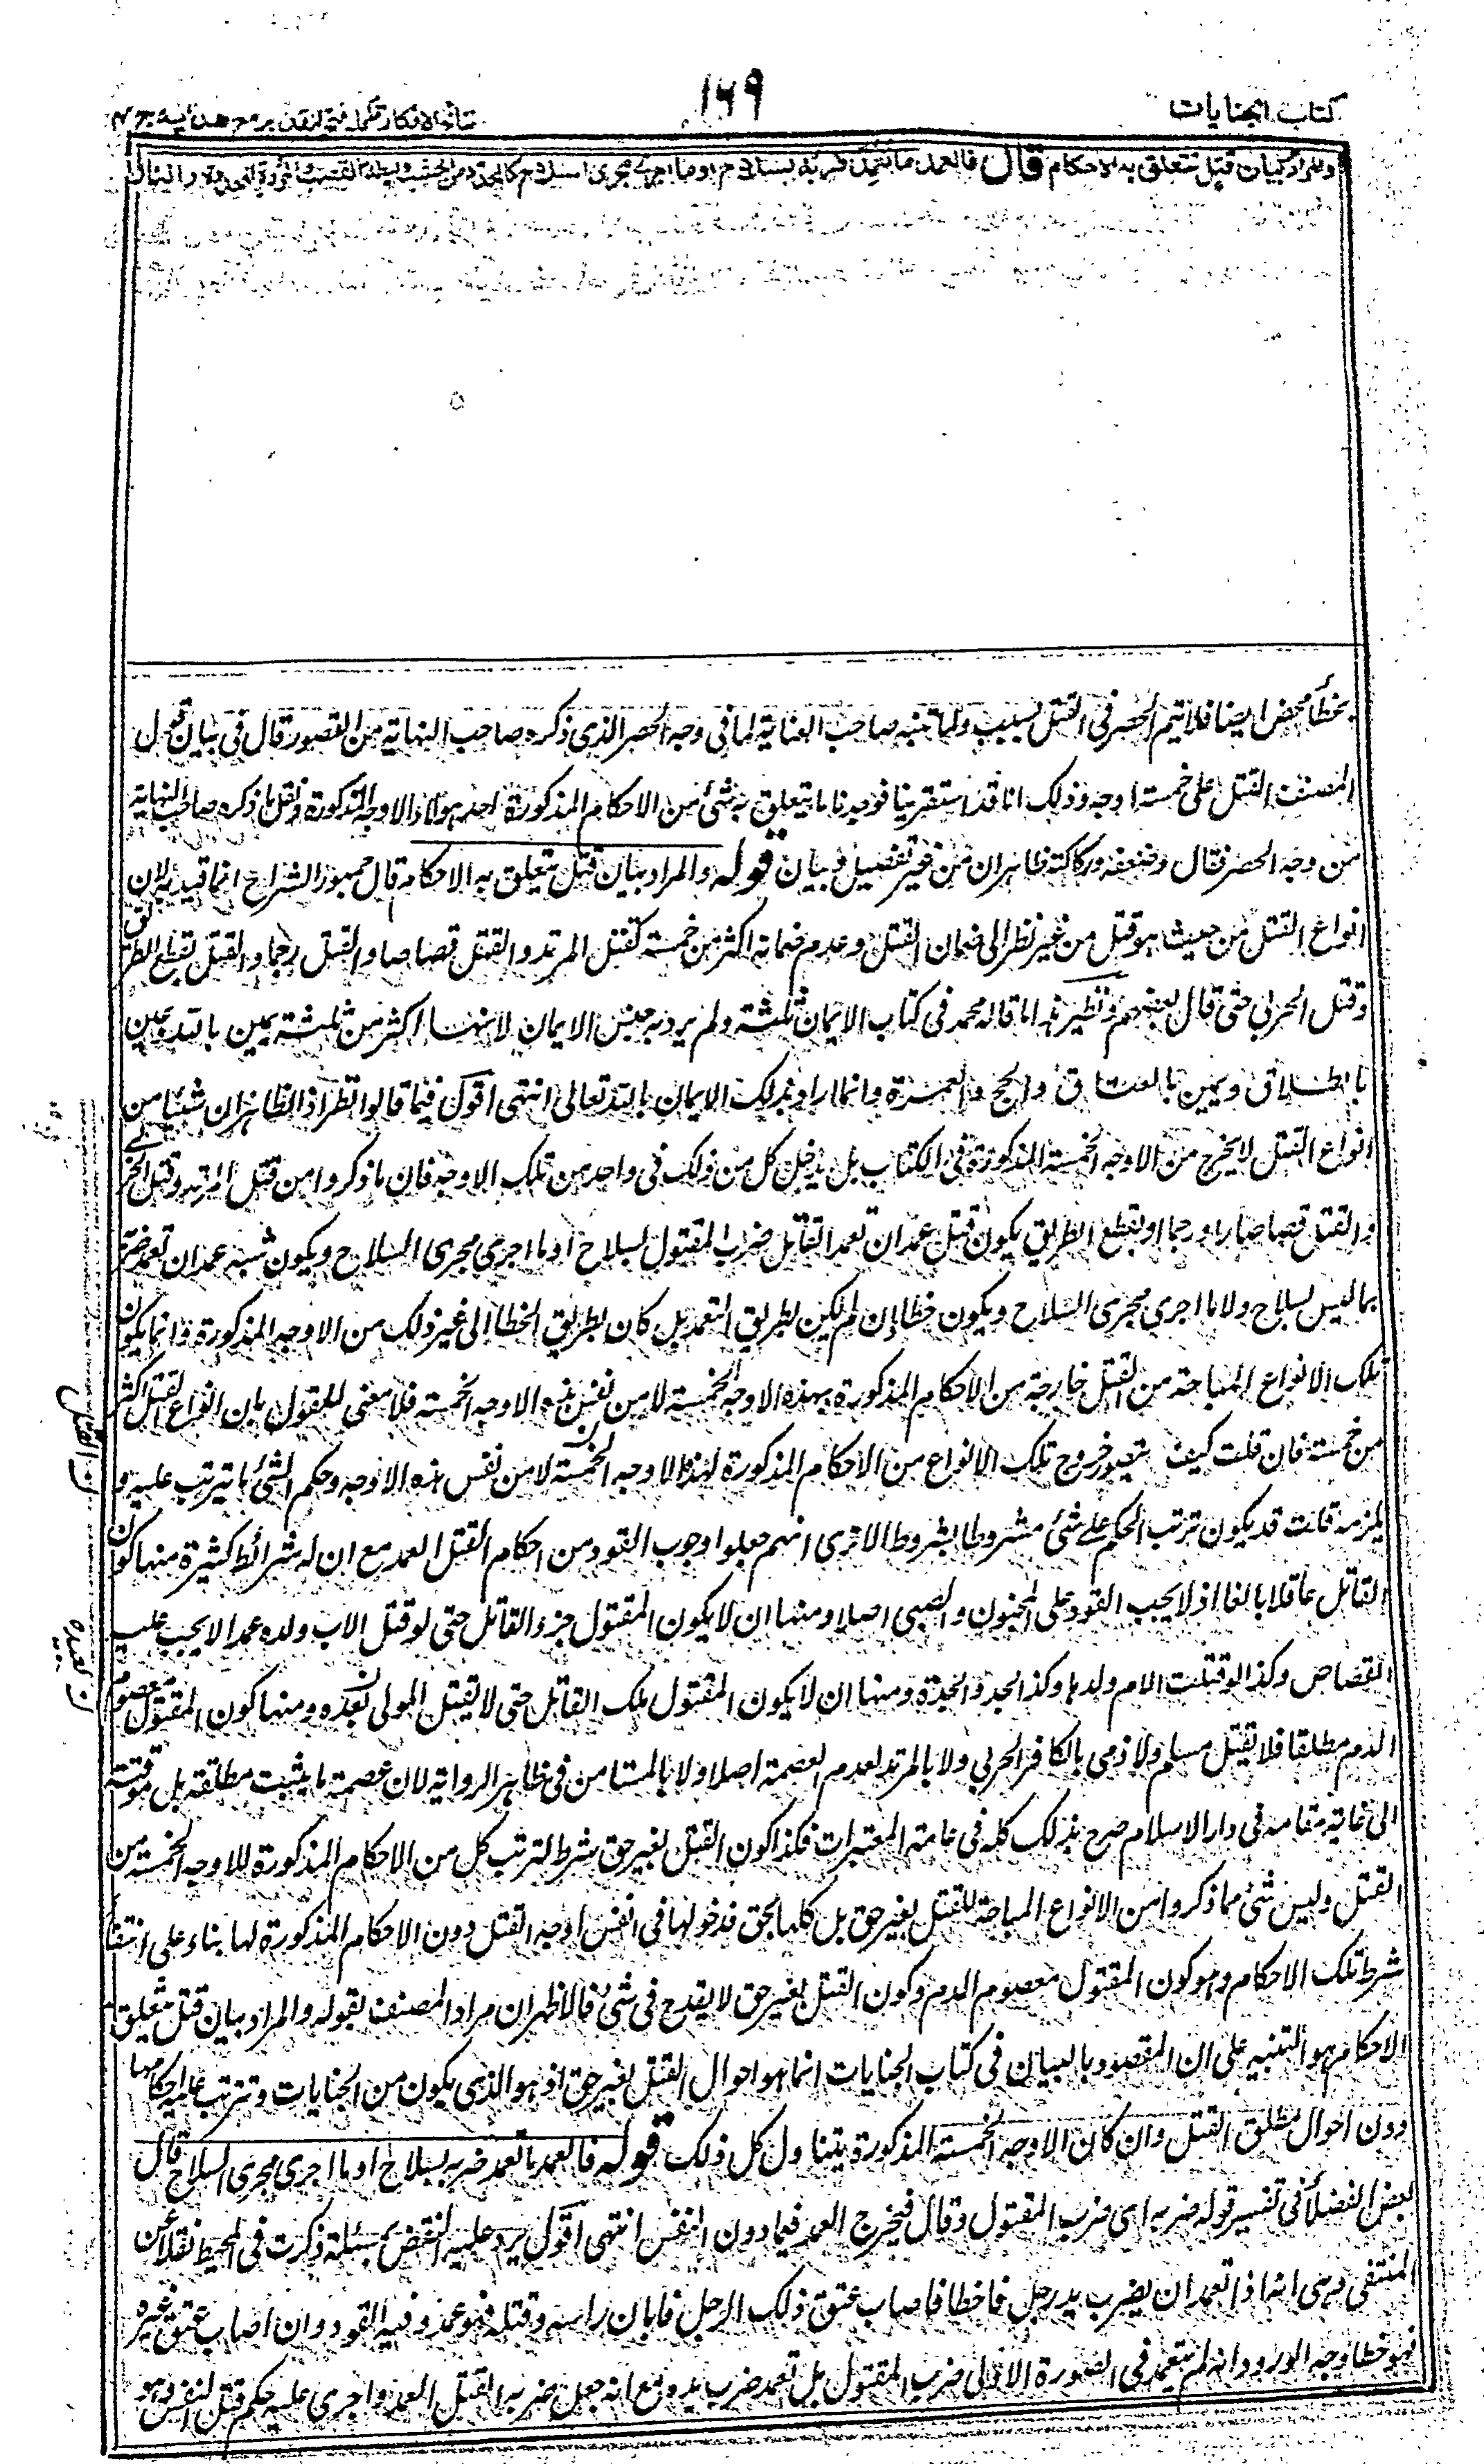 كتاب الجنايات
١٦٩
نتائج الافكار تكملة فتح القدير مع هدايه ج ٤
والمراد بيان قتل تتعلق به الاحكام قال فالعمد ما تعمد ضربه بسلاح او ما اجرى مجرى السلاح كالمحدد من الخشب وليطة القصب والمروة المحددة والنار
بخطأ محض ايضا فلا يتم الحصر فى القتل بسبب ولما تنبه صاحب العناية لما فى وجه الحصر الذى ذكره صاحب النهاية من القصور قال فى بيان قول
المصنف القتل على خمسة اوجه وذلك انا قد استقرينا فوجدنا ما يتعلق به شئ من الاحكام المذكورة احد هؤلاء الاوجه المذكورة ونقل ما ذكره صاحب النهاية
من وجه الحصر فقال وضعفه وركاكته ظاهران من غير تفصيل وبيان قوله والمراد بيان قتل تتعلق به الاحكام قال جمهور الشراح انما قيد به لان
انواع القتل من حيث هو قتل من غير نظر الى ضمان القتل وعدم ضمانه اكثر من خمسة كقتل المرتد والقتل قصاصا والقتل رجما والقتل بقطع الطريق
وقتل الحربي حتى قال بعضهم ونظير هذا ما قاله محمد فى كتاب الايمان الايمان ثلثة ولم يرد به جنس الايمان لانها اكثر من ثلثة يمين بالله ويمين
بالطلاق ويمين بالعتاق والحج والعمرة وانما اراد بذلك الايمان بالله تعالى انتهى اقول فيما قالوا نظر اذ الظاهر ان شيئا من
انواع القتل لا يخرج من الاوجه الخمسة المذكورة فى الكتاب بل يدخل كل من ذلك فى واحد من تلك الاوجه فان ما ذكروا من قتل المرتد وقتل الحربى
والقتل قصاصا او رجما او بقطع الطريق يكون قتل عمد ان تعمد القاتل ضرب المقتول بسلاح او ما اجرى مجرى السلاح ويكون شبه عمد ان تعمد ضربه
بما ليس بسلاح ولا ما اجرى مجرى السلاح ويكون خطا ان لم يكن بطريق التعمد بل كان بطريق الخطا الى غير ذلك من الاوجه المذكورة وانما يكون
تلك الانواع المباحة من القتل خارجة من الاحكام المذكورة بهذه الاوجه الخمسة لا من نفس هذه الاوجه الخمسة فلا معنى للقول بان انواع القتل اكثر
من خمسة فان قلت كيف يتصور خروج تلك الانواع من الاحكام المذكورة لهذه الاوجه الخمسة لا من نفس هذه الاوجه وحكم الشئ ما يترتب عليه و
يلزمه قلت قد يكون ترتب الحكم على شئ مشروطا بشروط الا ترى انهم جعلوا وجوب القود من احكام القتل العمد مع ان له شرائط كثيرة منها كون
القاتل عاقلا بالغا اذ لا يجب القود على المجنون والصبى اصلا ومنها ان لا يكون المقتول جزء القاتل حتى لو قتل الاب ولده عمدا لا يجب عليه
القصاص وكذا لو قتلت الام ولدها وكذا الجد والجدة ومنها ان لا يكون المقتول ملك القاتل حتى لا يقتل المولى بعبده ومنها كون المقتول معصوم
الدم مطلقا فلا يقتل مسلم ولا ذمى بالكافر الحربي ولا بالمرتد لعدم العصمة اصلا ولا بالمستامن فى ظاهر الرواية لان عصمته ما يثبت مطلقة بل موقتة
الى غاية مقامه فى دار الاسلام صرح بذلك كله فى عامة المعتبرات فكذا كون القتل بغير حق شرط لترتب كل من الاحكام المذكورة للاوجه الخمسة من
القتل وليس شئ مما ذكروا من الانواع المباحة للقتل بغير حق بل كلها بحق فدخولها فى انفس اوجه القتل دون الاحكام المذكورة لها بناء على انتفاء
شرط تلك الاحكام وهو كون المقتول معصوم الدم وكون القتل بغير حق لا يقدح فى شئ فالاظهر ان مراد المصنف بقوله والمراد بيان قتل تتعلق به
الاحكام هو التنبيه على ان المقصود بالبيان فى كتاب الجنايات انما هو احوال القتل بغير حق اذ هو الذى يكون من الجنايات وتترتب عليه احكامها
دون احوال مطلق القتل وان كان الاوجه الخمسة المذكورة يتناول كل ذلك قوله فالعمد ما تعمد ضربه بسلاح او ما اجرى مجرى السلاح قال
بعض الفضلاء فى تفسير قوله ضربه اى ضرب المقتول وقال فيخرج العمد فيما دون النفس انتهى اقول يرد عليه النقض بمسئلة ذكرت فى المحيط نقلا عن
المنتقى وهى انه اذا تعمد ان يضرب يد رجل فاخطا فاصاب عنق ذلك الرجل فابان راسه وقتله فهو عمد وفيه القود وان اصاب عنق غيره
فهو خطا وجه الورود انه لم يتعمد فى الصورة الاولى ضرب المقتول بل تعمد ضرب يده مع انه جعل ضربه القتل العمد واجرى عليه حكم قتل النفس وهو